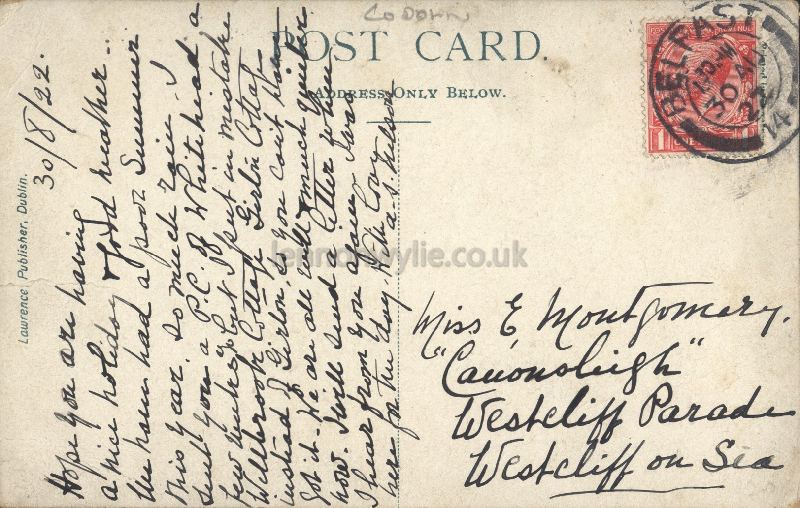 CODOWN
POST CARD.
ADDRESS ONLY BELOW.
BELFAST
30 AU
22
14
Lawrence, Publisher, Dublin.
30/8/22.
Hope you are having
a nice holiday & good weather –
We have had a poor Summer
this year. So much rain. I
sent you a P.C. of Whitehead a
few weeks ago but I put in mistake
Willbrook Cottage Girton Cottage
instead of Girton, so you can't have
got it. We are all well & much quieter
now. I will send a letter when
I hear from you again. I was
here for the day. With love
Miss E Montgomery.
"Canonsleigh"
Westcliff Parade
Westcliff on Sea
lennonwylie.co.uk